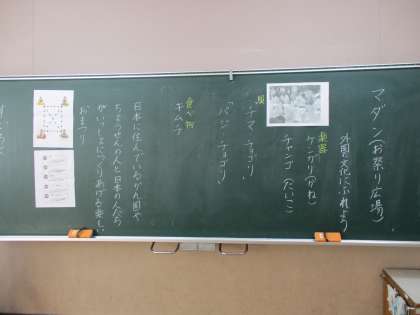 マダン(お祭り広場)
外国の文化にふれよう
楽器
ケンガリ(かね)
チャンゴ(たいこ)
服
チマ・チョゴリ
パジ・チョゴリ
食べ物
キムチ
日本に住んでいるかん国や
ちょうせんの人と日本の人たち
がいっしょにつくりあげる楽しい
おまつり